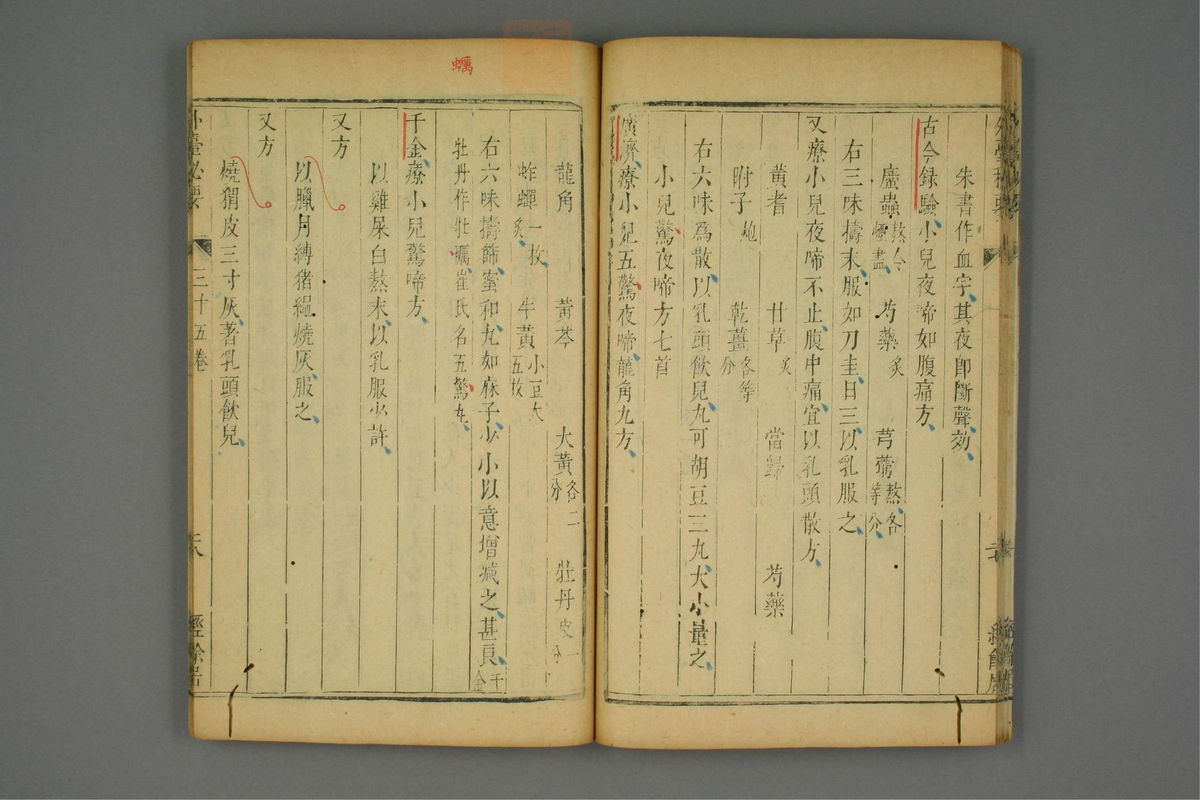 朱書作血字其夜即斷聲効
古今録驗小兒夜啼如腹痛方
䗪蟲熬令煙盡 芍藥炙 芎藭熬各等分
右三味擣末服如刀圭日三以乳服之
又療小兒夜啼不止腹中痛宜以乳頭散方
黃耆 甘草炙 當歸 芍藥
附子炮 乾薑各等分
右六味為散以乳頭飲兒丸可胡豆三丸大小量之
小兒驚夜啼方七首
廣濟療小兒五驚夜啼龍角丸方
龍角 黃芩 大黃各二分 牡丹皮一分
蚱蟬一枚炙 牛黃小豆大五枚
右六味擣篩蜜和丸如麻子少小以意增減之甚良千金
牡丹作牡蠣崔氏名五驚丸
千金療小兒驚啼方
以雞屎白熬末以乳服少許
又方
以臘月縛猪繩燒灰服之
又方
燒猬皮三寸灰著乳頭飲兒
外臺秘要 三十五卷 經餘居
蠣